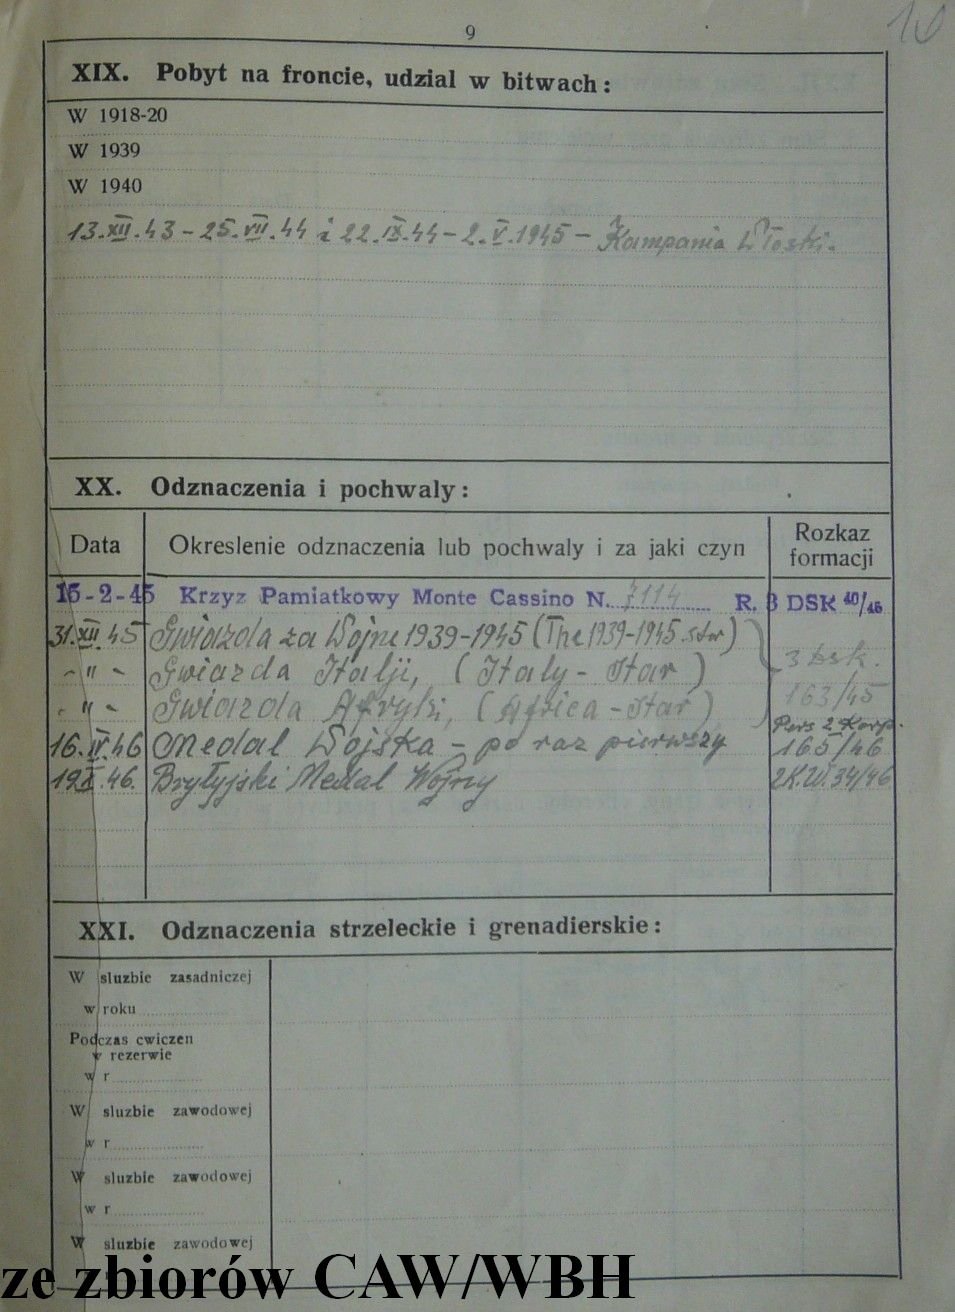 9
10
XIX. Pobyt na froncie, udzial w bitwach:
W 1918-20
W 1939
W 1940
13.XII.43 – 25.VII.44 i 22.IX.44 – 2.V.1945 – Kampania Włoski.
XX. Odznaczenia i pochwaly:
Data Okreslenie odznaczenia lub pochwaly i za jaki czyn Rozkaz formacji
15-2-45 Krzyz Pamiatkowy Monte Cassino N. 7114 R. 3 DSK 40/45
31.XII.45 Gwiazda za Wojnę 1939-1945 (The 1939-1945 Star)
– " – Gwiazda Italji, (Italy - Star) 3 Dsk.
– " – Gwiazda Afryki, (Africa - Star) 163/45
16.IV.46 Medal Wojska – po raz pierwszy Pers 2 Korp. 165/46
Brytyjski Medal Wojny 2K.W.34/46
XXI. Odznaczenia strzeleckie i grenadierskie:
W sluzbie zasadniczej
w roku
Podczas cwiczen
w rezerwie
w r
W sluzbie zawodowej
w r
W sluzbie zawodowej
w r
W sluzbie zawodowej
ze zbiorów CAW/WBH